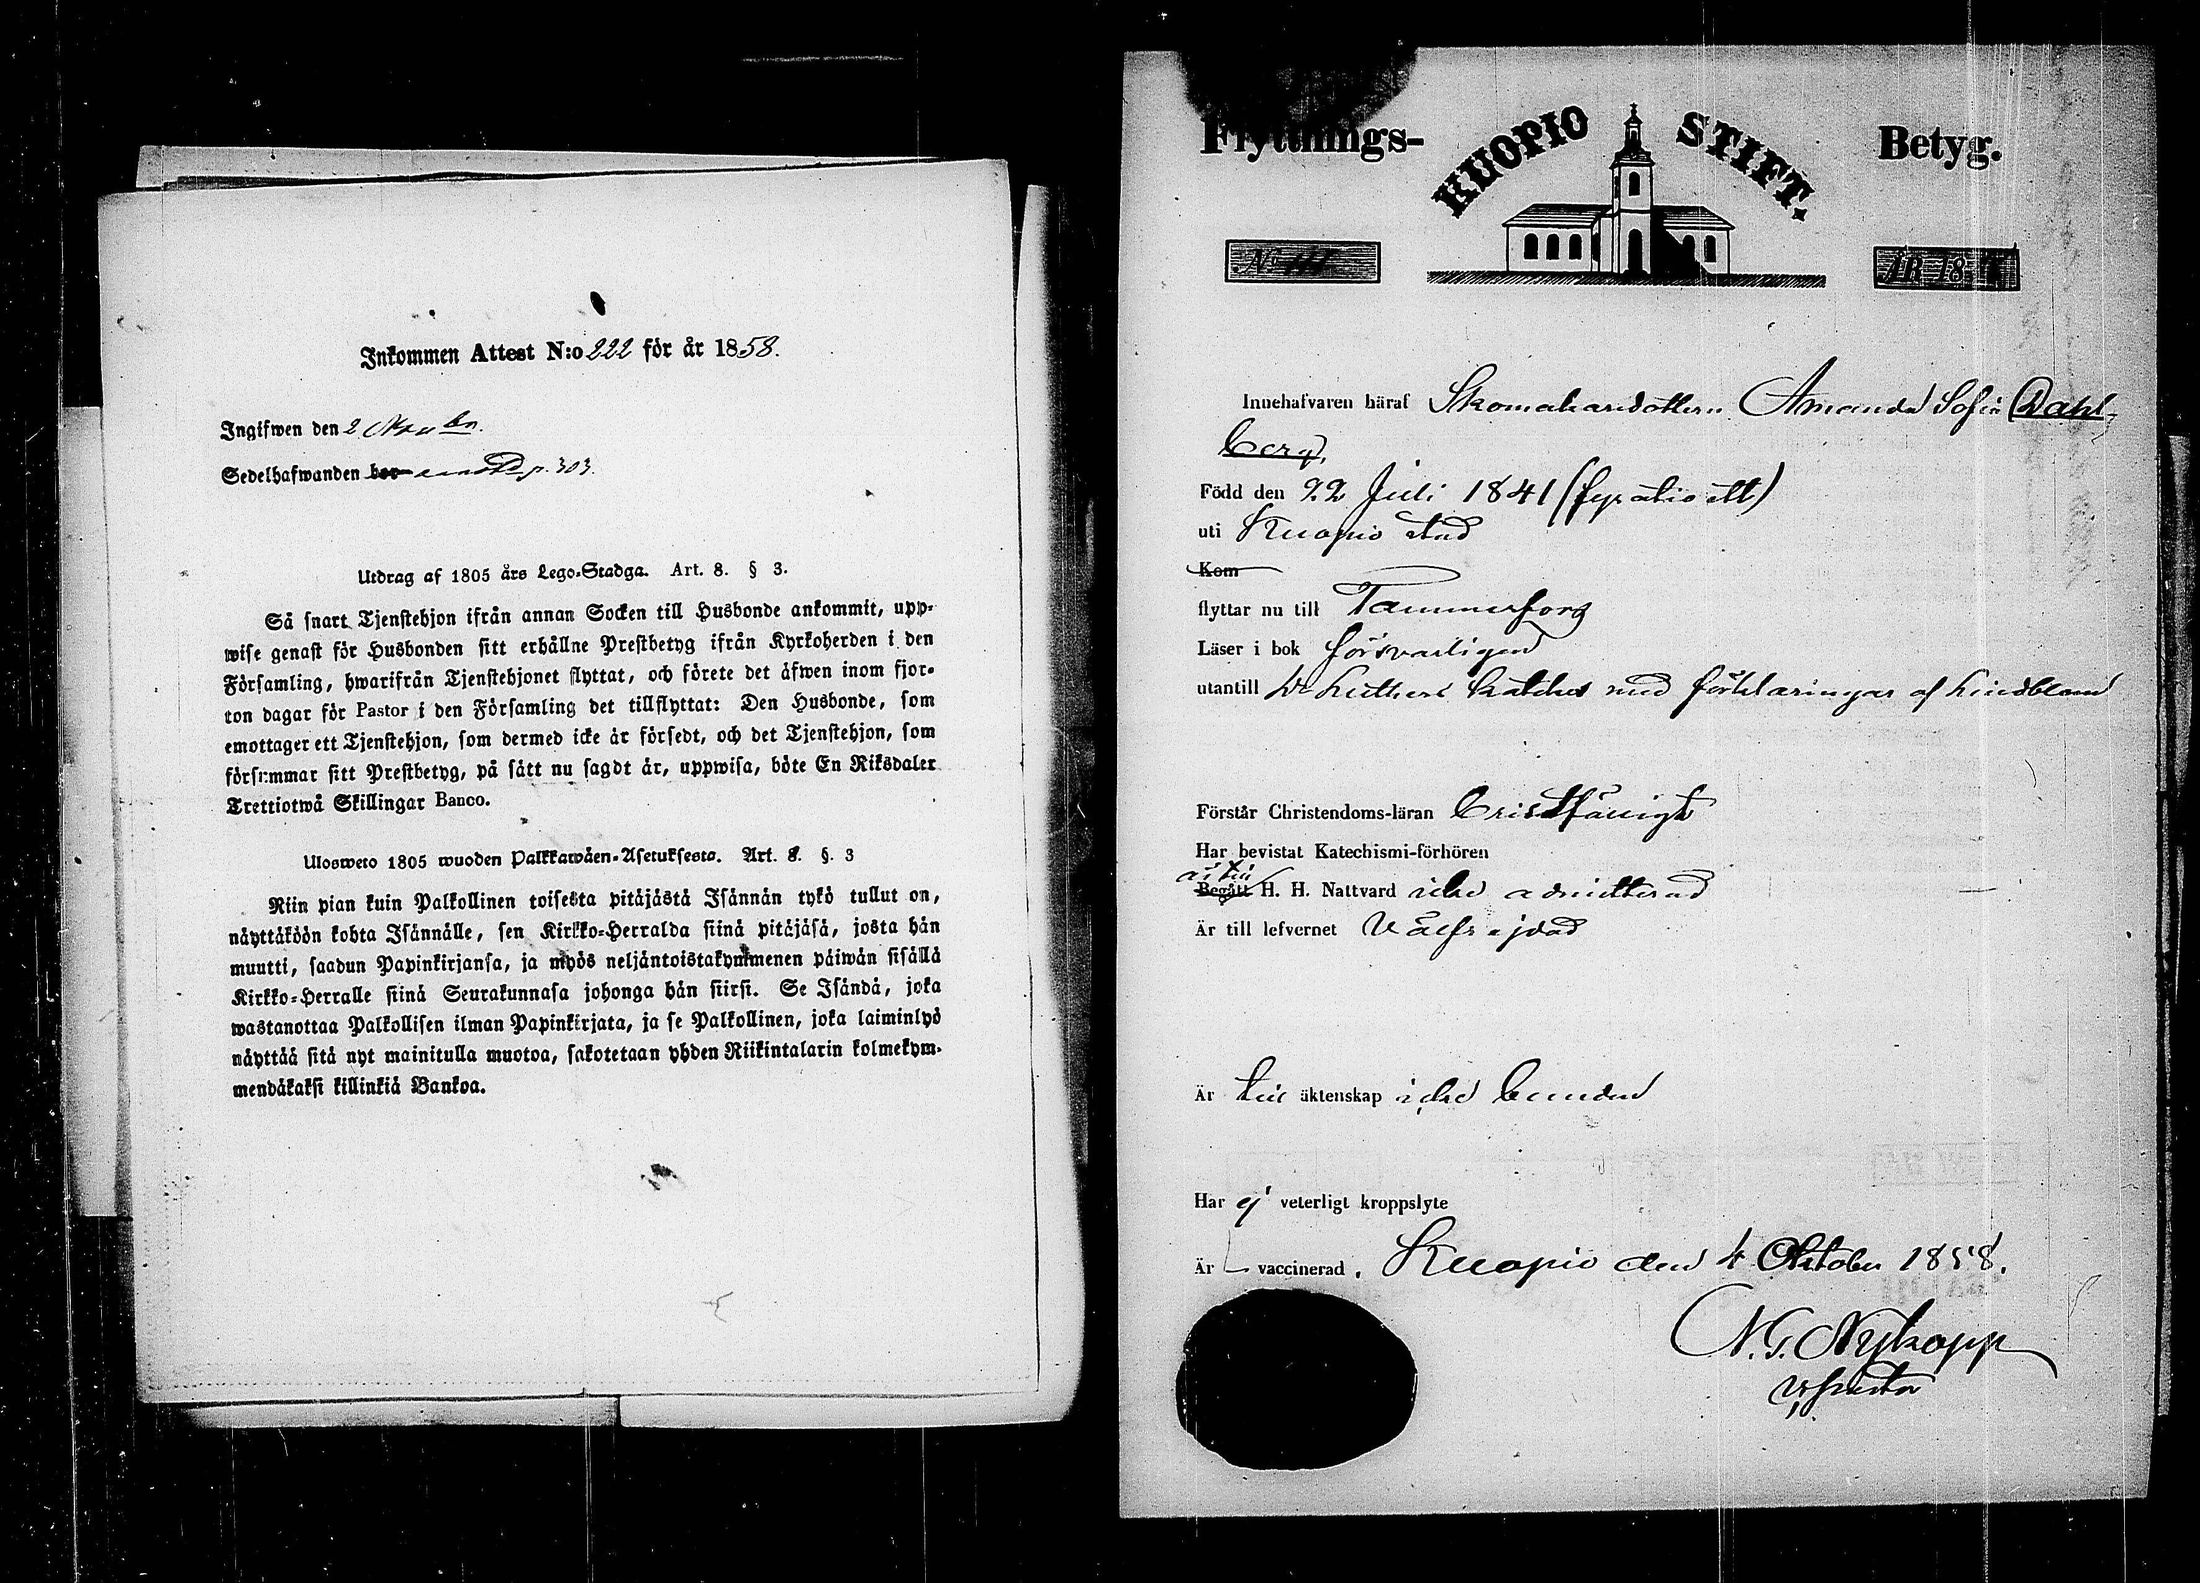 Inkommen Attest N:o 222 för år 1858.
Ingifwen den 2 Novbr.
Sedelhafwanden bor p. 303.
Utdrag af 1805 års Lego-Stadga. Art. 8. § 3.
Så snart Tjenstehjon ifrån annan Socken till Husbonde ankommit, upp-
wise genast för Husbonden sitt erhållne Prestbetyg ifrån Kyrkoherden i den
Församling, hwarifrån Tjenstehjonet flyttat, och förete det äfwen inom fjor-
ton dagar för Pastor i den Församling det tillflyttat: Den Husbonde, som
emottager ett Tjenstehjon, som dermed icke är försedt, och det Tjenstehjon, som
försummar sitt Prestbetyg, på sätt nu sagdt är, uppwisa, böte En Riksdaler
Trettiotwå Skillingar Banco.
Ulosweto 1805 wuoden Palkkawäen-Asetuksesta. Art. 8. §. 3
Niin pian kuin Palkollinen toisesta pitäjästä Isännän tykö tullut on,
näyttäköön kohta Isännälle, sen Kirkko-Herralda siinä pitäjäsä, josta hän
muutti, saadun Papinkirjansa, ja myös neljäntoistakymmenen päiwän sisällä
Kirkko-Herralle siinä Seurakunnasa johonga hän siirsi. Se Isändä, joka
wastanottaa Palkollisen ilman Papinkirjata, ja se Palkollinen, joka laiminlyö
näyttää sitä nyt mainitulla muotoa, sakotetaan yhden Riikintalarin kolmekym-
mendäkaksi killinkiä Bankoa.
Flyttnings- KUOPIO STIFT. Betyg.
No ÅR 18
Innehafvaren häraf Skomakaredottern Amanda Sofia Dahl-
berg,
Född den 22 Juli 1841 (fyratio ett)
uti Kuopio stad
Kom
flyttar nu till Tammerfors
Läser i bok försvarligen
utantill Dr Luthers kateches med förklaringar af Lindblom
Förstår Christendoms-läran
Har bevistat Katechismi-förhören
är till
Begått H. H. Nattvard icke admitterad
Är till lefvernet
Är till äktenskap icke bunden
Har ej veterligt kroppslyte
Är vaccinerad. Kuopio den 4 Oktober 1858.
N. G. Nykopp
V. Pastor